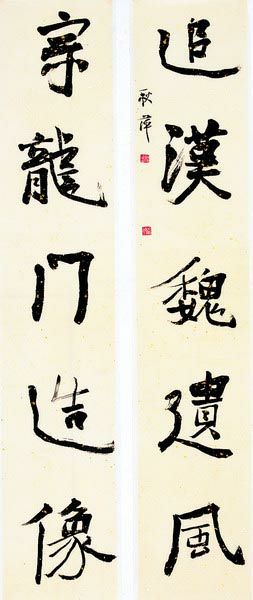 追漢魏遺風
宗龍门造像
秋萍